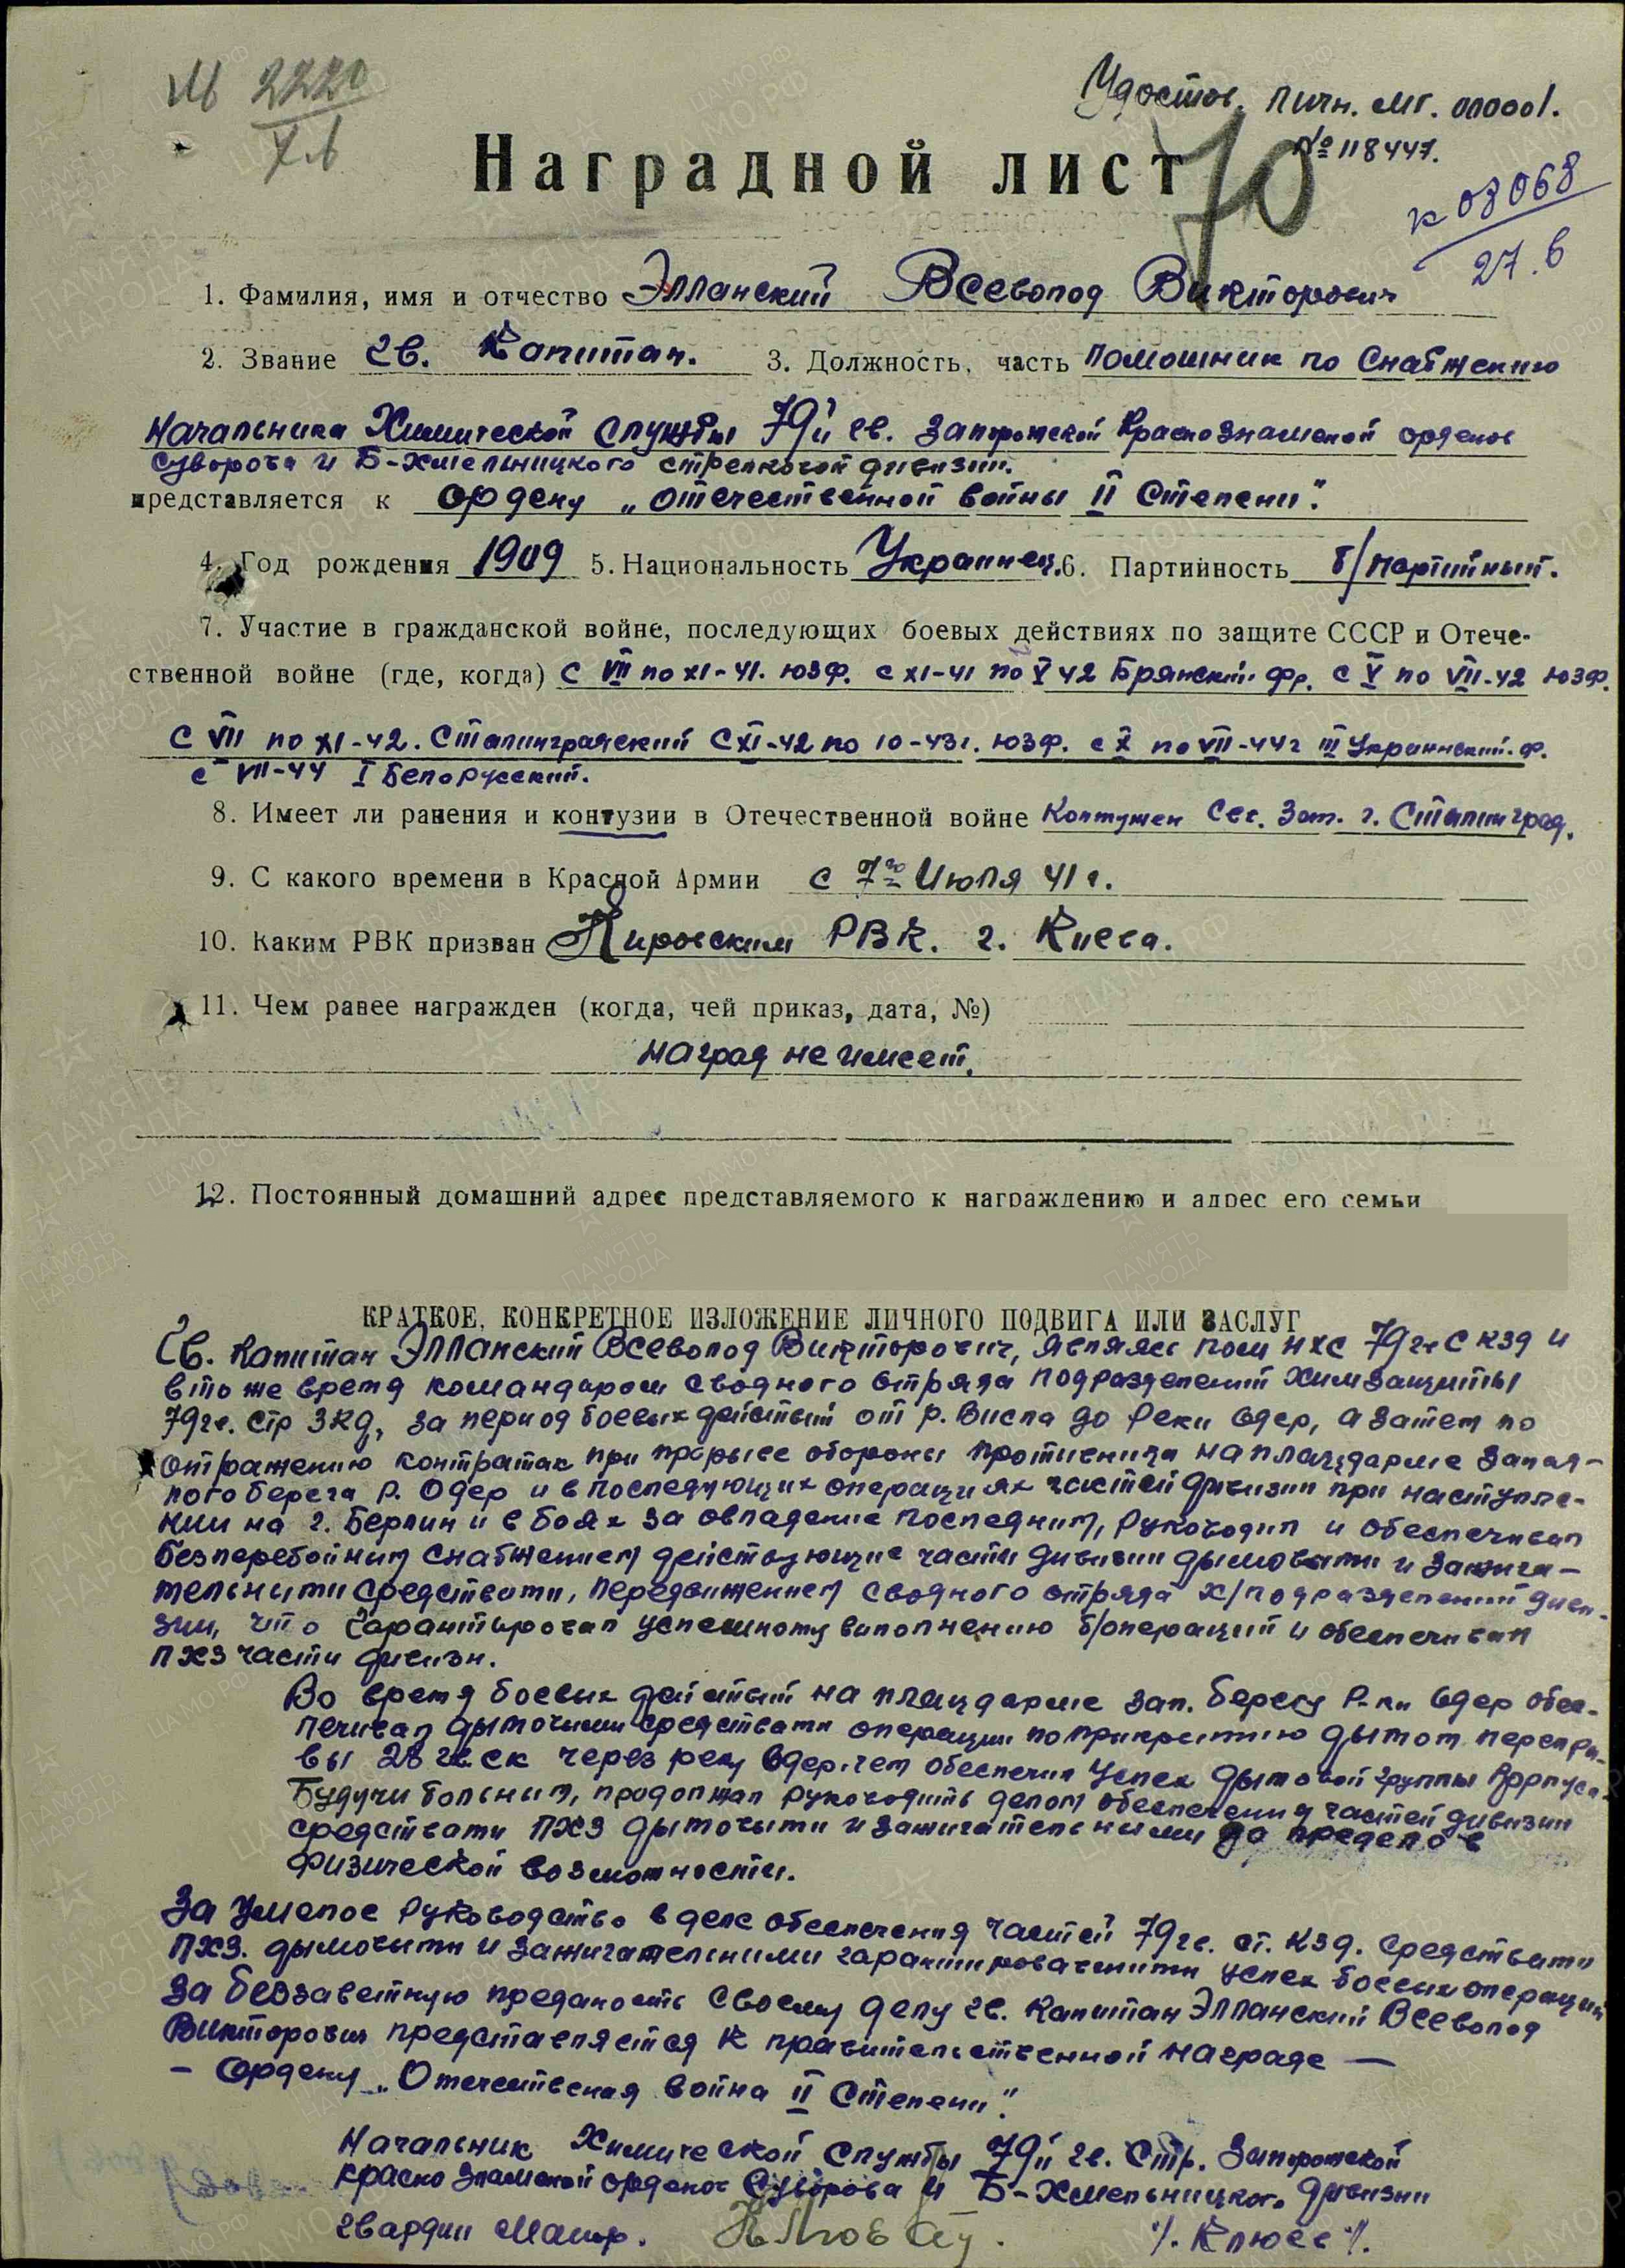 № 2220
7.6
Удостов. личн. мг. 000001.
№ 118447.
70
к 03068
27.6
Наградной лист
1. Фамилия, имя и отчество Элланский Всеволод Викторович
2. Звание гв. Капитан. 3. Должность, часть помошник по Снабжению
Начальника Химической службы 79й гв. Запорожской Краснознаменой орденов
Суворова и Б-Хмельницкого стрелковой дивизии.
представляется к ордену „отечественной войны II Степени".
4. Год рождения 1909 5. Национальность Украинец. 6. Партийность б/партийный.
7. Участие в гражданской войне, последующих боевых действиях по защите СССР и Отече-
ственной войне (где, когда) с VII по XI-41. ЮЗФ. с XI-41 по V 42 Брянский фр. с V по VII-42 ЮЗФ.
с VII по XI-42. Сталинградский с XI-42 по 10-43г. ЮЗФ. с X по VII-44г III Украинский. ф.
с VII-44 I Белорусский.
8. Имеет ли ранения и контузии в Отечественной войне Контужен Сев. Зап. г. Сталинград.
9. С какого времени в Красной Армии с 7го Июля 41г.
10. Каким РВК призван Кировским РВК. г. Киева.
11. Чем ранее награжден (когда, чей приказ, дата, №)
наград не имеет.
12. Постоянный домашний адрес представляемого к награждению и адрес его семьи
КРАТКОЕ, КОНКРЕТНОЕ ИЗЛОЖЕНИЕ ЛИЧНОГО ПОДВИГА ИЛИ ЗАСЛУГ
Гв. Капитан Элланский Всеволод Викторович, являясь пом НХС 79 гв С КЗД и
в то же время командиром сводного отряда подразделений химзащиты
79 гв. стр ЗКД, за период боевых действий от р. Висла до реки Одер, а затем по
отражению контратак при прорыве обороны противника на плацдарме запад-
ного берега р. Одер и в последующих операциях частей дивизии при наступле-
нии на г. Берлин и в боях за овладение последним, руководил и обеспечивал
безперебойным снабжением действующие части дивизии дымовыми и зажига-
тельными средствами, передвижением сводного отряда х/подразделений диви-
зии, что гарантировал успешному выполнению б/операций и обеспечивал
ПХЗ части дивизи.
Во время боевых действий на плацдарме зап. берегу р-ки Одер обес-
печивал дымовыми средствами операции по прикрытию дымом перепра-
вы 28 гв. ск через реку Одер, чем обеспечил успех дымовой группы Корпуса.
Будучи больным, продолжал руководить делом обеспечения частей дивизии
средствами ПХЗ дымовыми и зажигательными до пределов
физической возможности.
За умелое руководство в деле обеспечения частей 79 гв. ст. КЗД. средствами
ПХЗ. дымовыми и зажигательными гарантировавшими успех боевых операций
за беззаветную преданость своему делу гв. Капитан Элланский Всеволод
Викторович представляется к правительственной награде —
— Ордену „Отечественая война II Степени".
Начальник Химической службы 79й гв. Стр. Запорожской
краснознаменой орденов Суворова и Б-Хмельницкого дивизии
гвардии Маиор. /. Клюев /.